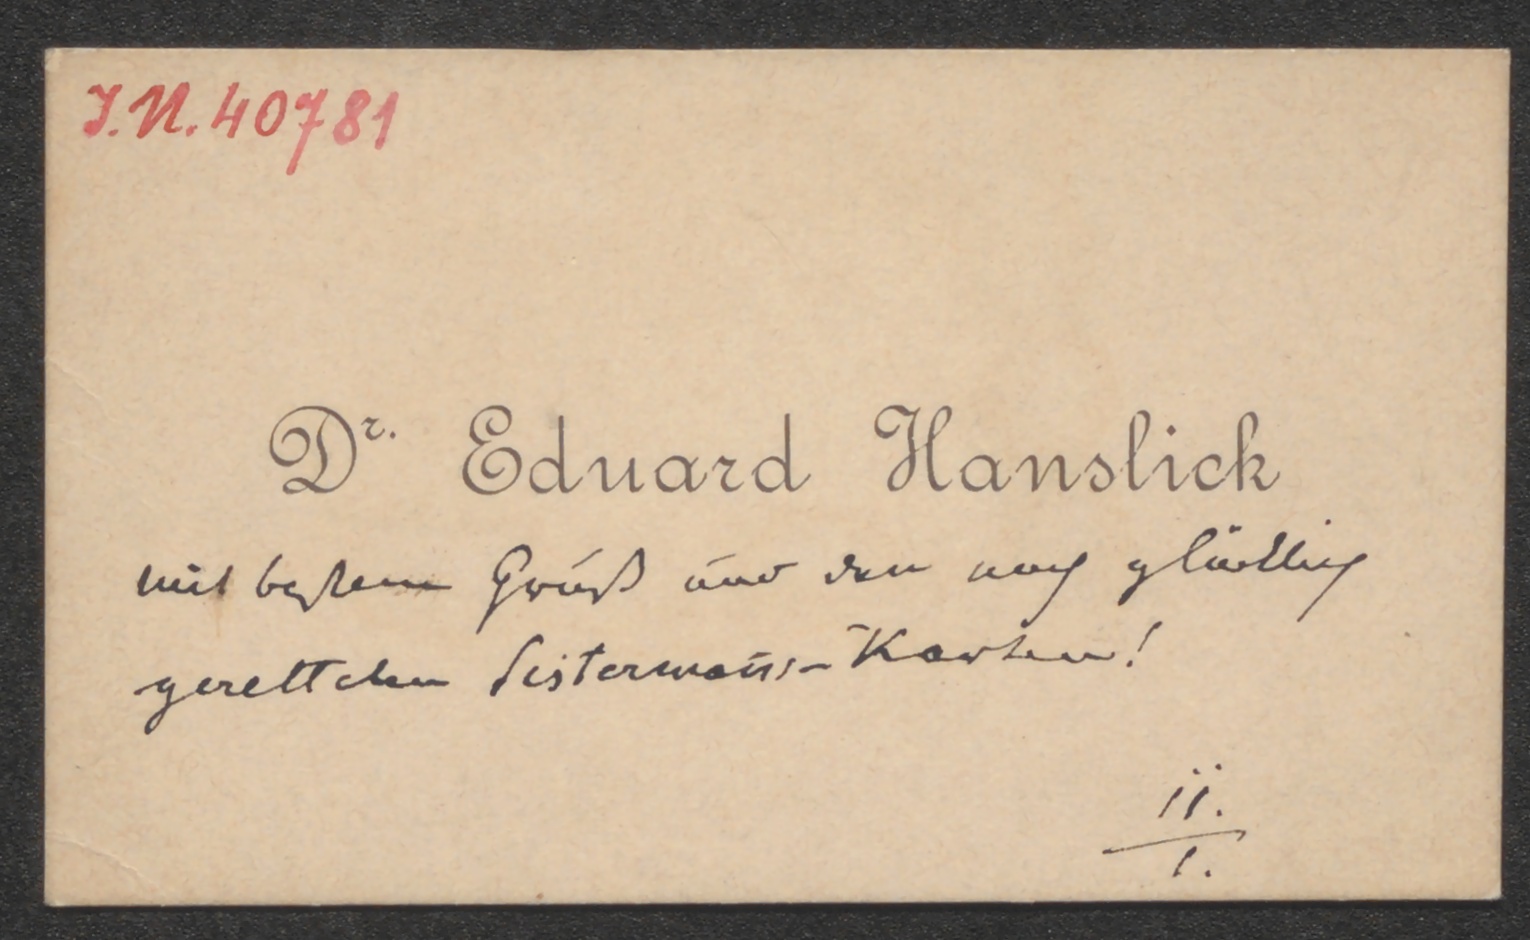 J.N. 40781
Dr. Eduard Hanslick
mit bestem Gruß und den noch glücklich
geretteten Sistermans-Karten!
11.
1.